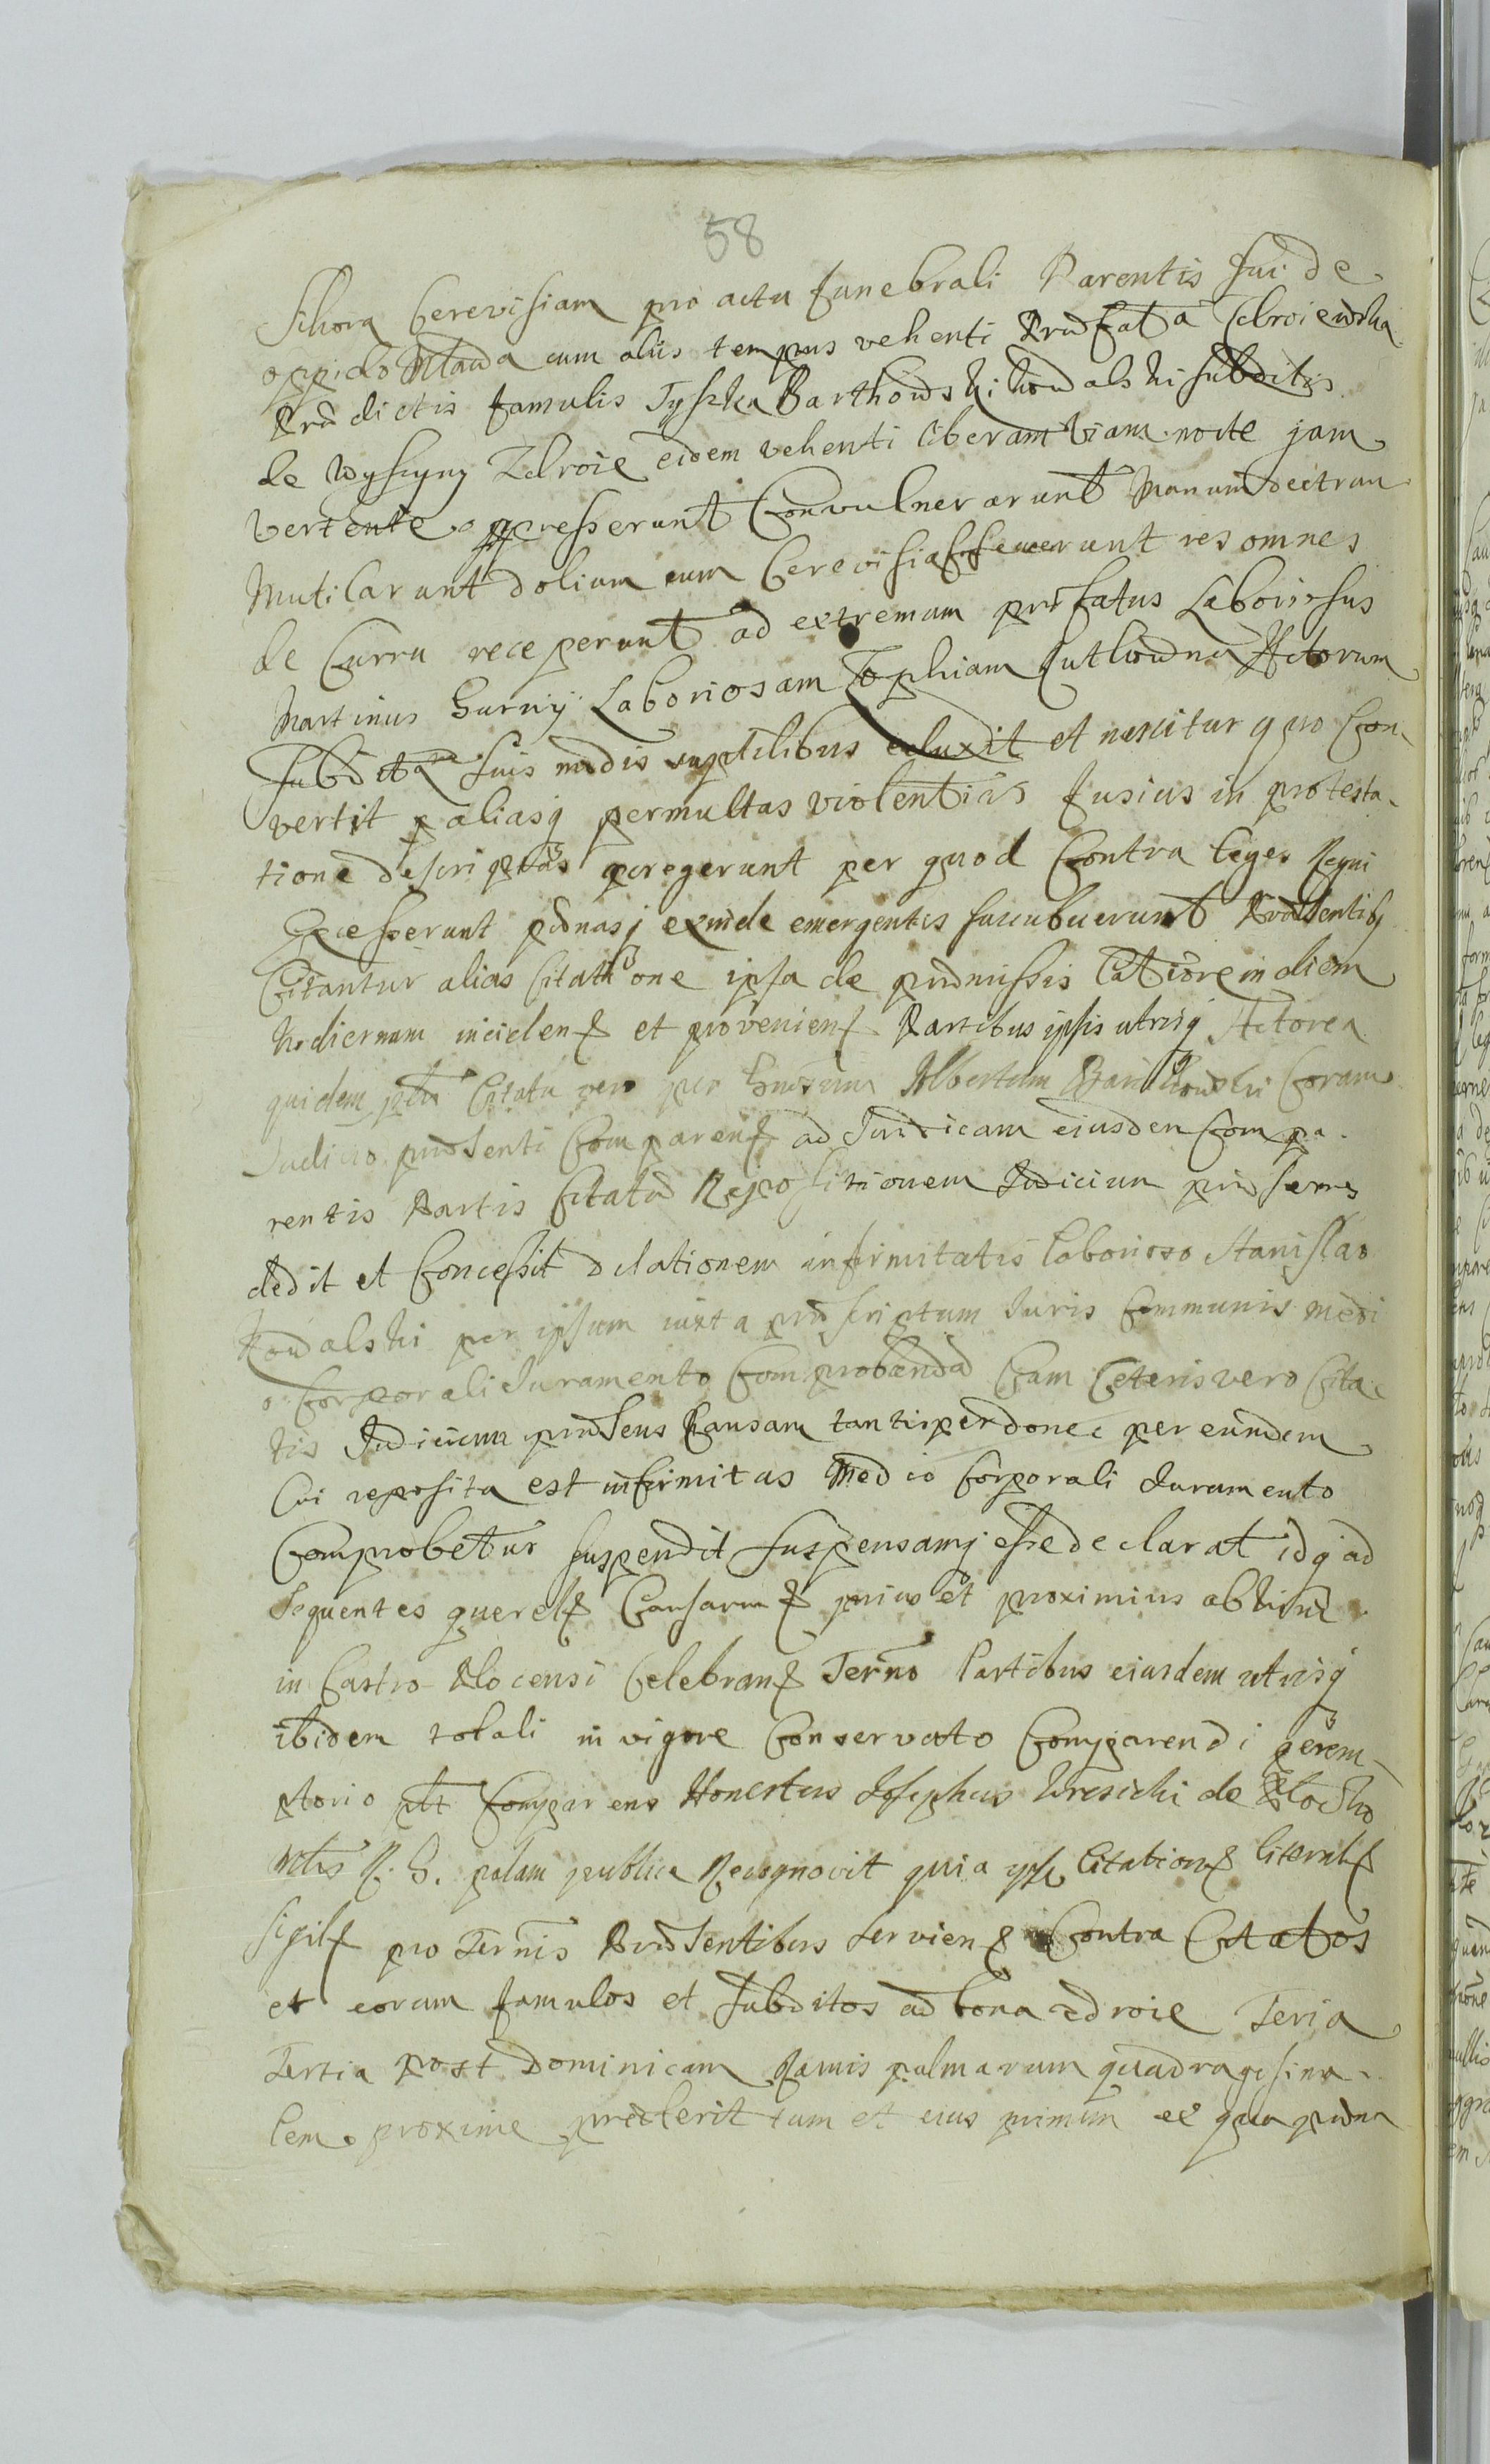 58
Sikora Cerevisiam pro actu funebrali Parentis sui de
oppido Mlawa cum aliis tempus vehenti Præfata Zdroiewska
Prædictis famulis Tyszka Barthowski Kowalski subditis
de Wyszyny Zdroie eidem vehenti liberam viam nocte jam
vertente oppresserunt Convulnerarunt Manum dectram
Mutilarunt dolium cum Cerevisia res omnes
de Curru receperunt ad extremum præfatus Laboriosus
Martinus Gurny Laboriosam Zophiam Actorum
Subditam suis modis suptilibus eduxit et nescitur quo Con
vertit aliasq permultas violentias fusius in protesta
tione descriptas peregerunt per quod Contra leges Regni
Excesserunt pænasq exinde emergentes succubuerunt Præsentibq
Citantur alias Citatione ipsa de præmissis latiore in diem
hodiernam inciden et provenien Partibus ipsis utrisq Actorea
quidem Citata vero per Gnosum Albertum Barthowski Coram
Judicio præsenti Comparen ad Juridicam eiusdem Compa
rentis Partis Citatæ Repositionem Judicium præsens
dedit et Concessit dilationem infirmitatis Laborioso Stanislao
Kowalski per ipsum iuxta præscriptum Juris Communis medi
o Corporali Juramento Comprobandæ Cum Ceteris vero Cita
tis Judicium præsens Causam tantisper donec per eundem
Cui reposita est infirmitas Medio Corporali Juramento
Comprobetur suspendit suspensamq esse declarat idq ad
Sequentes querel Causarum prius et proximius abhinc
in Castro Plocensi Celebran Termo Partibus eiusdem utrisq
ibidem totali in vigore Conservato Comparendi perem
ptorio Comparens Honestus Josephus de Plocko
Mtis R. G. palam publice Recognovit quia Citation literal
sigil pro Ternis Præsentibus servien Contra Citatos
et eorum famulos et subditos ad bona Zdroie Feria
Tertia post Dominicam Ramis palmarum quadragesima
lem proxime præterit tum et eius primum ex qua